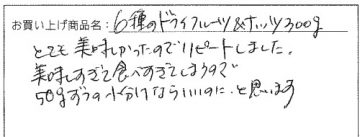 お買い上げ商品名:6種のドライフルーツ&ナッツ300g
とても美味しかったのでリピートしました。
美味しすぎて食べすぎてしまうので
50gずつの小分けならいいのに、と思います